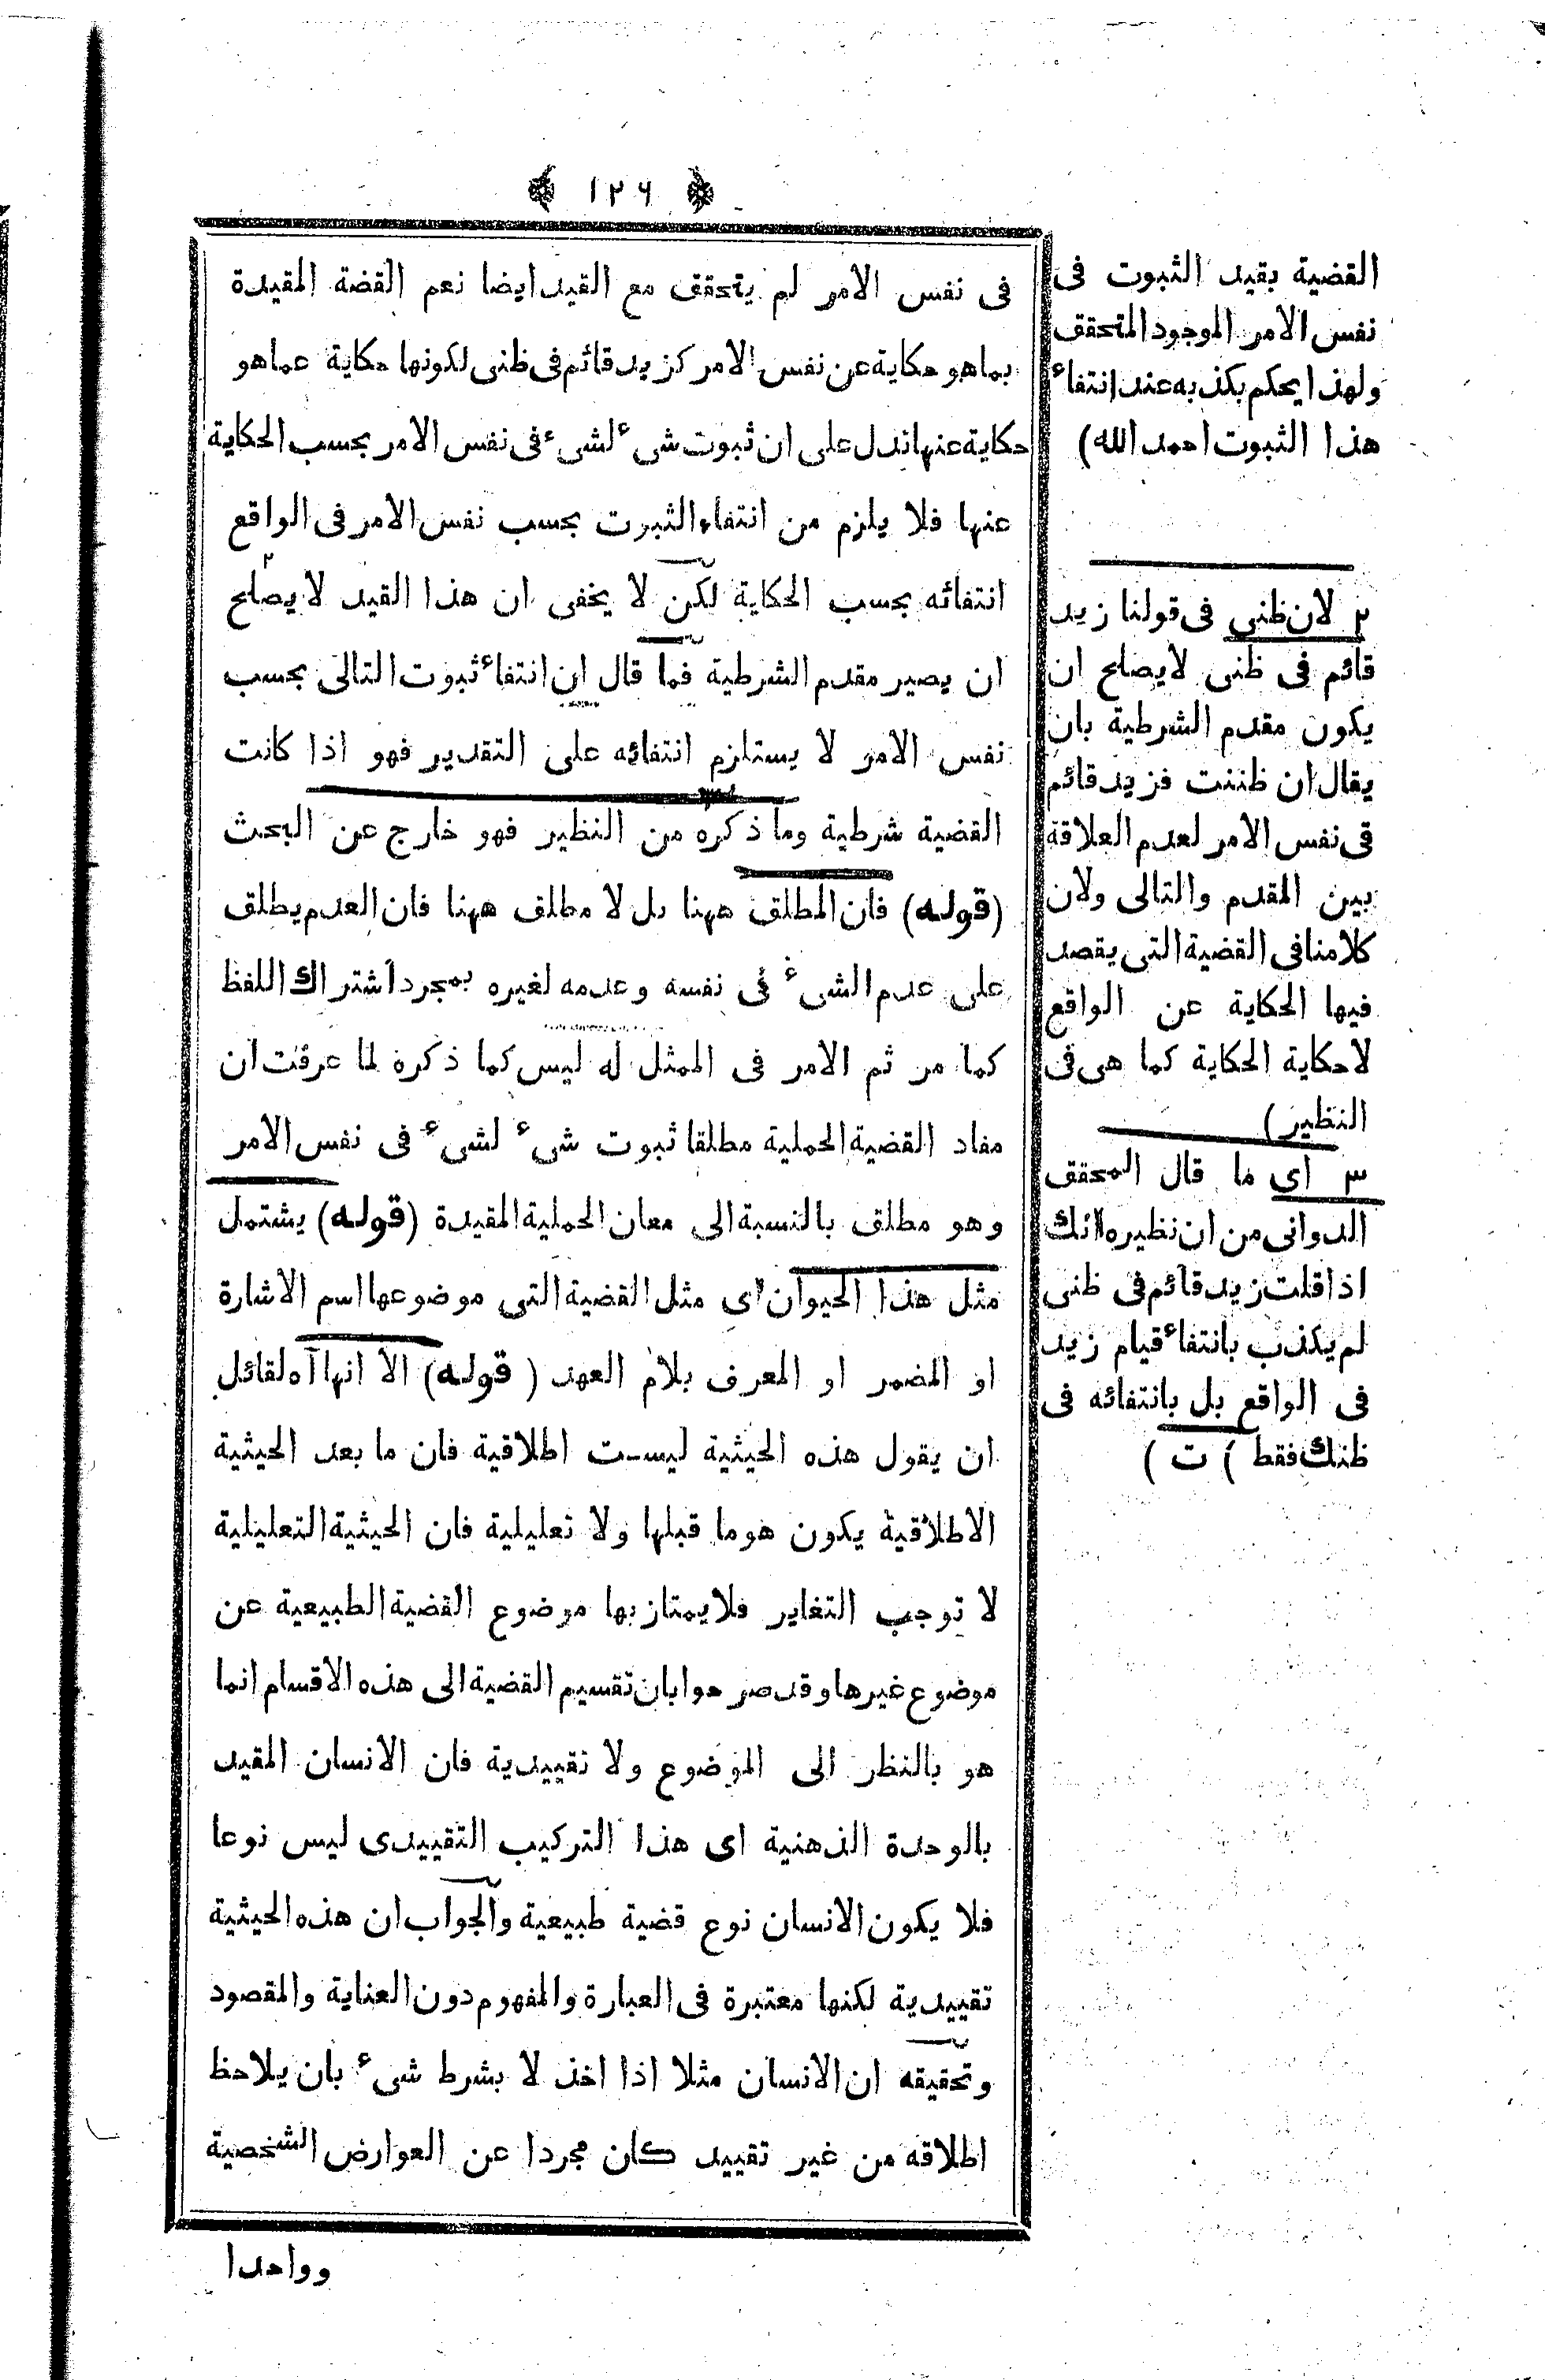 ١٢٦
فى نفس الامر لم يتحقق مع القيد ايضا نعم القضة المقيدة
بما هو حكاية عن نفس الامر كزيد قائم فى ظنى لكونها حكاية عما هو
حكاية عنها تدل على ان ثبوت شىء لشىء فى نفس الامر بحسب الحكاية
عنها فلا يلزم من انتفاء الثبوت بحسب نفس الامر فى الواقع
انتفائه بحسب الحكاية لكن لا يخفى ان هذا القيد لا يصلح ٢
ان يصير مقدم الشرطية فما قال ان انتفاء ثبوت التالى بحسب
نفس الامر لا يستلزم انتفائه على التقدير فهو اذا كانت
القضية شرطية وما ذكره من النظير فهو خارج عن البحث
(قوله) فان المطلق ههنا بل لا مطلق ههنا فان العدم يطلق
على عدم الشىء فى نفسه وعدمه لغيره بمجرد اشتراك اللفظ
كما مر ثم الامر فى الممثل له ليس كما ذكره لما عرفت ان
مفاد القضية الحملية مطلقا ثبوت شىء لشىء فى نفس الامر
وهو مطلق بالنسبة الى معان الحملية المقيدة (قوله) يشتمل
مثل هذا الحيوان اى مثل القضية التى موضوعها اسم الاشارة
او المضمر او المعرف بلام العهد (قوله) الا انها آه لقائل
ان يقول هذه الحيثية ليست اطلاقية فان ما بعد الحيثية
الاطلاقية يكون هو ما قبلها ولا تعليلية فان الحيثية التعليلية
لا توجب التغاير فلا يمتاز بها موضوع القضية الطبيعية عن
موضوع غيرها وقد صرحوا بان تقسيم القضية الى هذه الاقسام انما
هو بالنظر الى الموضوع ولا تقييدية فان الانسان المقيد
بالوحدة الذهنية اى هذا التركيب التقييدى ليس نوعا
فلا يكون الانسان نوع قضية طبيعية والجواب ان هذه الحيثية
تقييدية لكنها معتبرة فى العبارة والمفهوم دون العناية والمقصود
وتحقيقه ان الانسان مثلا اذا اخذ لا بشرط شىء بان يلاحظ
اطلاقه من غير تقييد كان مجردا عن العوارض الشخصية
وواحدا
القضية بقيد الثبوت فى
نفس الامر الموجود المتحقق
ولهذا يحكم بكذبه عند انتفاء
هذا الثبوت احمد الله)
٢ لان ظنى فى قولنا زيد
قائم فى ظنى لا يصلح ان
يكون مقدم الشرطية بان
يقال ان ظننت فزيد قائم
فى نفس الامر لعدم العلاقة
بين المقدم والتالى ولان
كلامنا فى القضية التى يقصد
فيها الحكاية عن الواقع
لا حكاية الحكاية كما هى فى
النظير)
٣ اى ما قال المحقق
الدوانى من ان نظيره انك
اذا قلت زيد قائم فى ظنى
لم يكذب بانتفاء قيام زيد
فى الواقع بل بانتفائه فى
ظنك فقط ) ت )